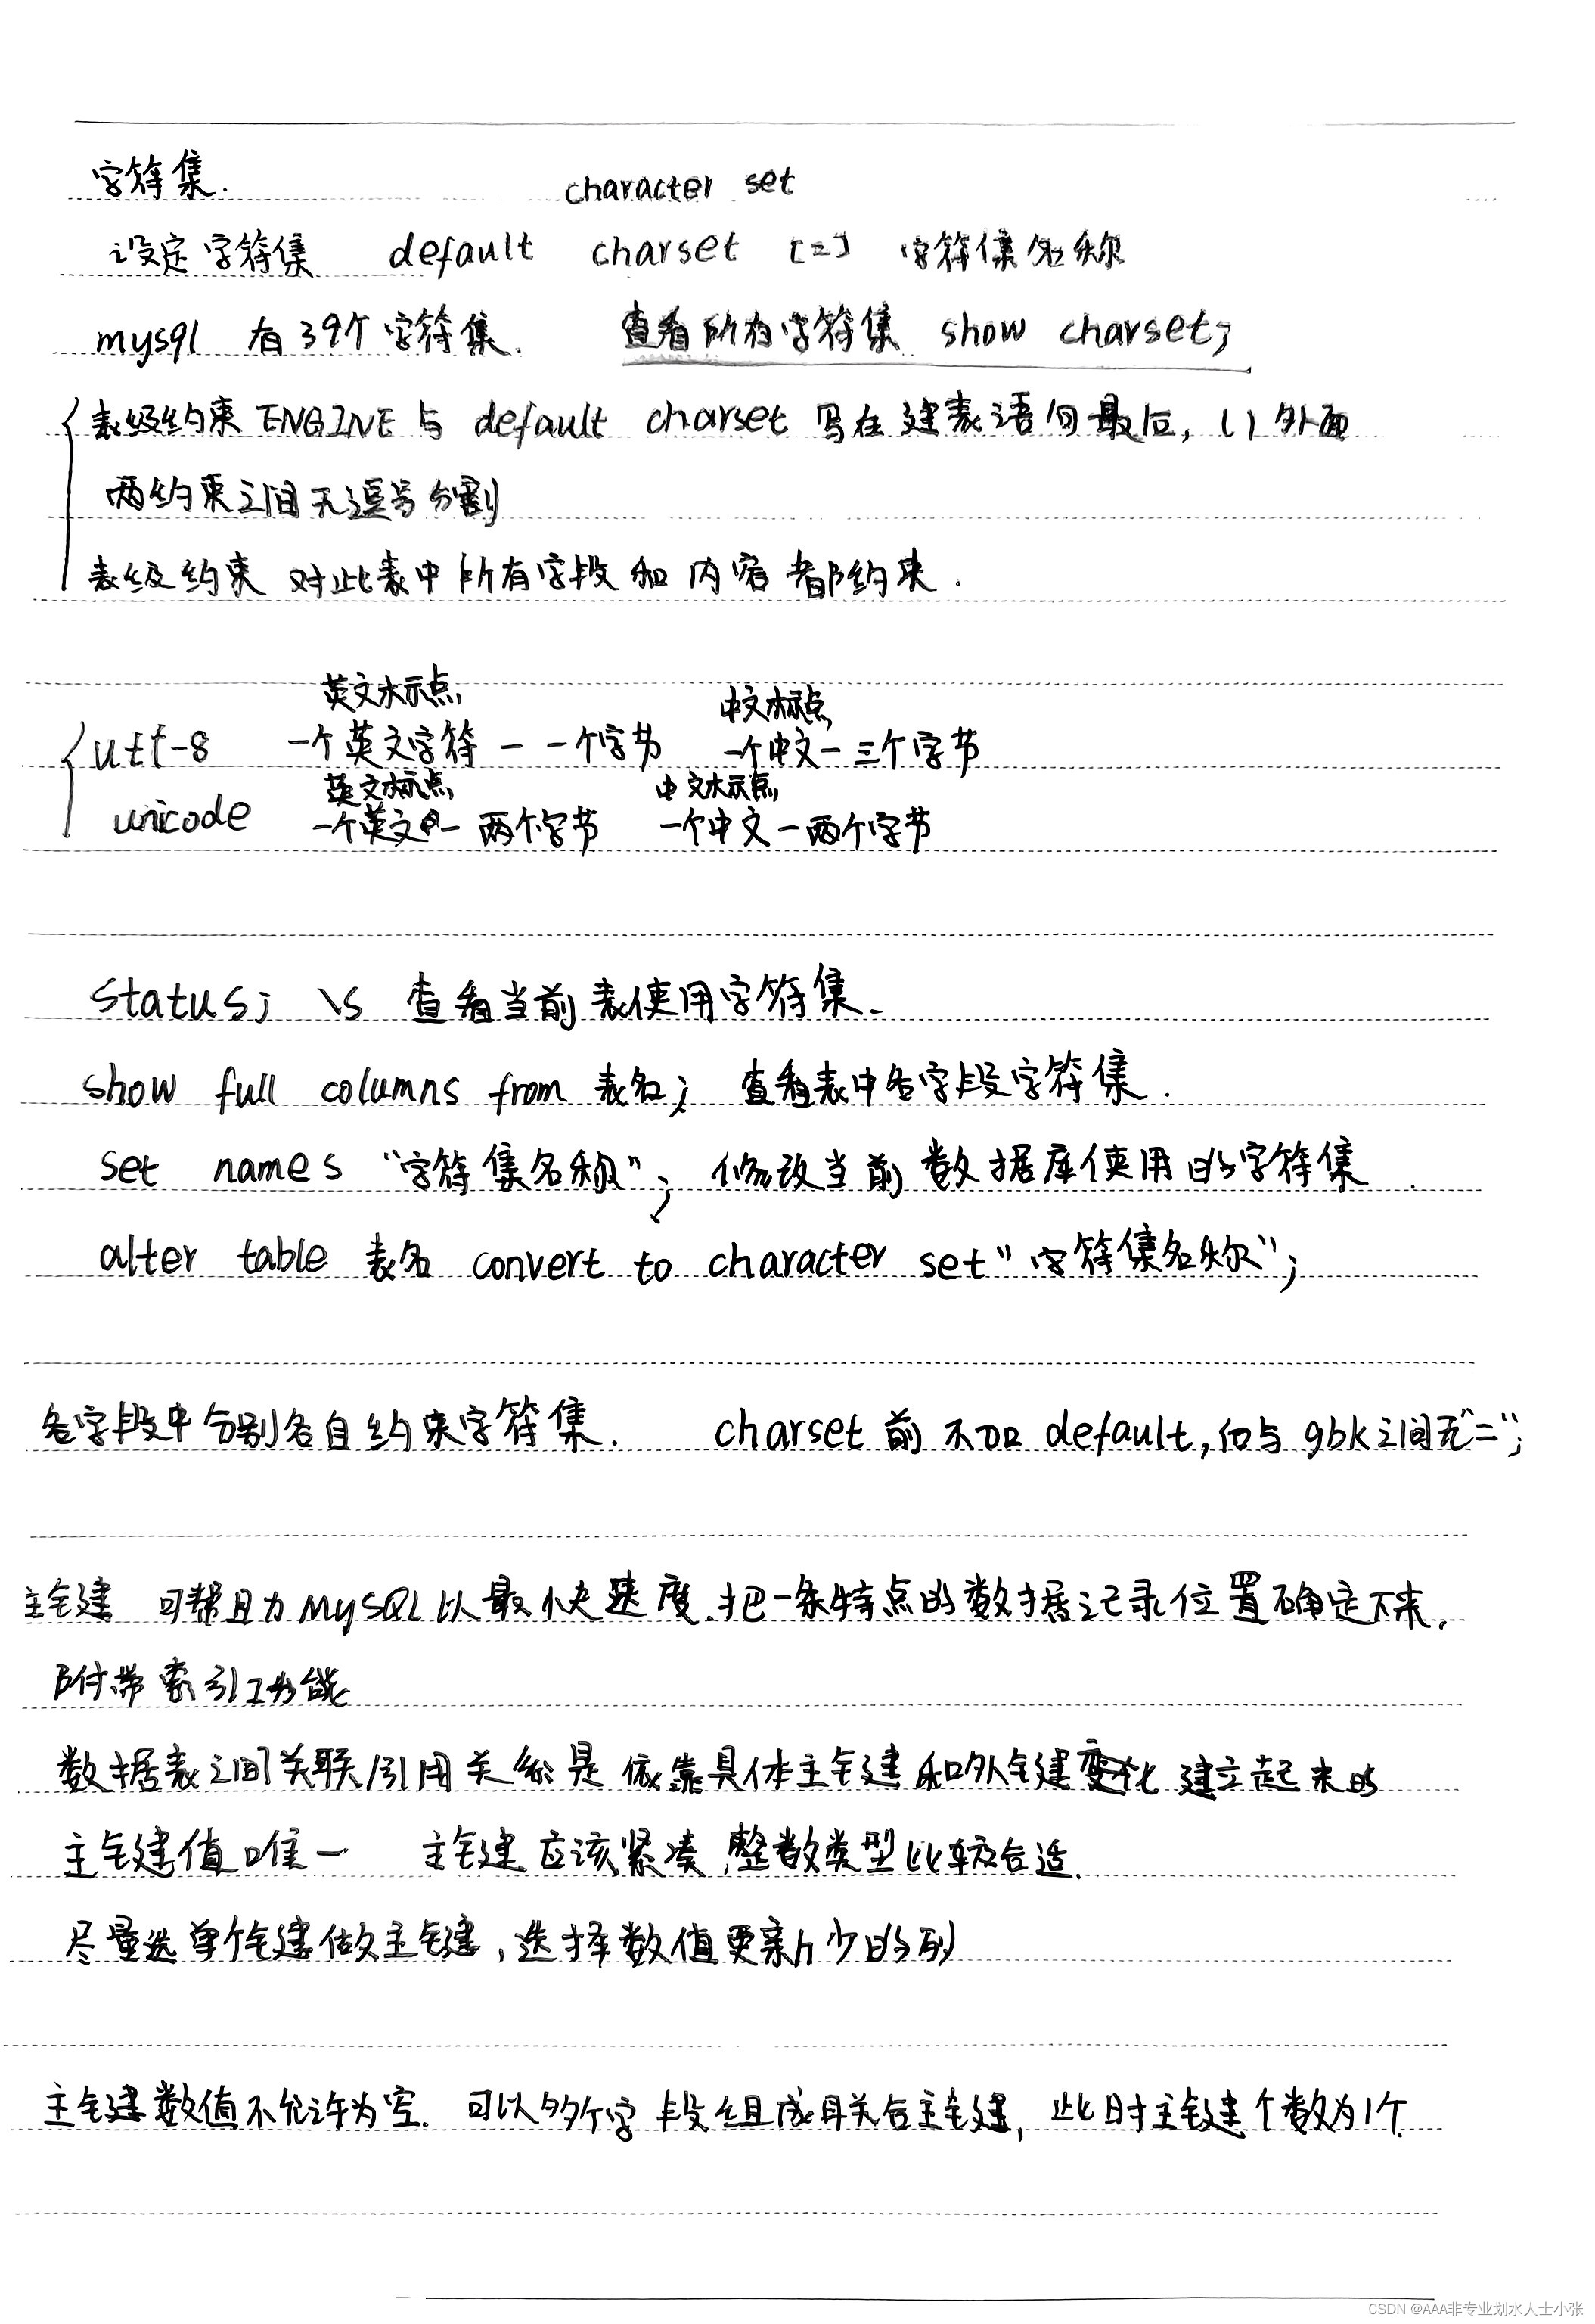 字符集.    character set
设定字符集  default charset [=] 字符集名称
mysql 有39个字符集.  查看所有字符集 show charset;
表级约束 ENGINE 与 default charset 写在建表语句最后, ( ) 外面
两约束之间无逗号分割
表级约束 对此表中所有字段和内容都约束.
英文标点,  中文标点,
utf-8 一个英文字符 — 一个字节 一个中文 — 三个字节
英文标点, 中文标点,
unicode 一个英文 — 两个字节 一个中文 — 两个字节
status; \s 查看当前表使用字符集.
show full columns from 表名; 查看表中各字段字符集.
set names “字符集名称”; 修改当前数据库使用的字符集.
alter table 表名 convert to character set "字符集名称";
各字段中分别各自约束字符集. charset 前不加 default, 和与 gbk 之间无"=";
主键 可帮助 MySQL 以最快速度, 把一条特点的数据记录位置确定下来.
附带索引功能
数据表之间关联/引用关系是依靠具体主键和外键建立起来的
主键值唯一 主键应该紧凑,整数类型比较合适.
尽量选单个键做主键,选择数值更新少的列
主键数值不允许为空. 可以多个字段组成联合主键, 此时主键个数为1个.
CSDN @AAA非专业划水人士小张